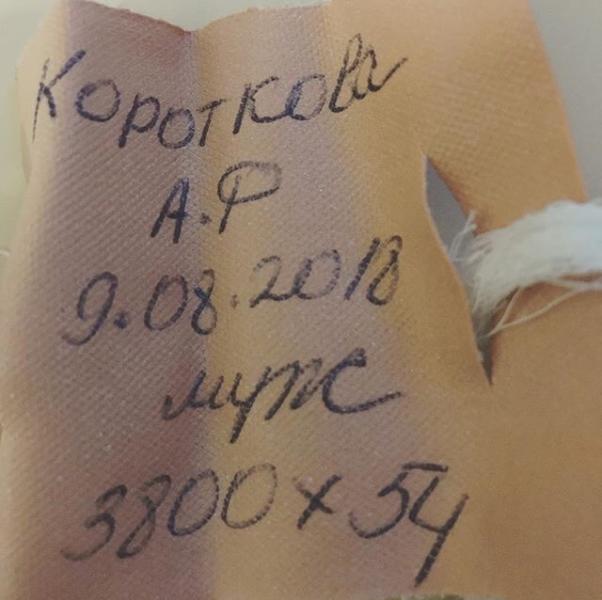 Короткова
А.Ф
9.08.2018
муж
3800 х 54